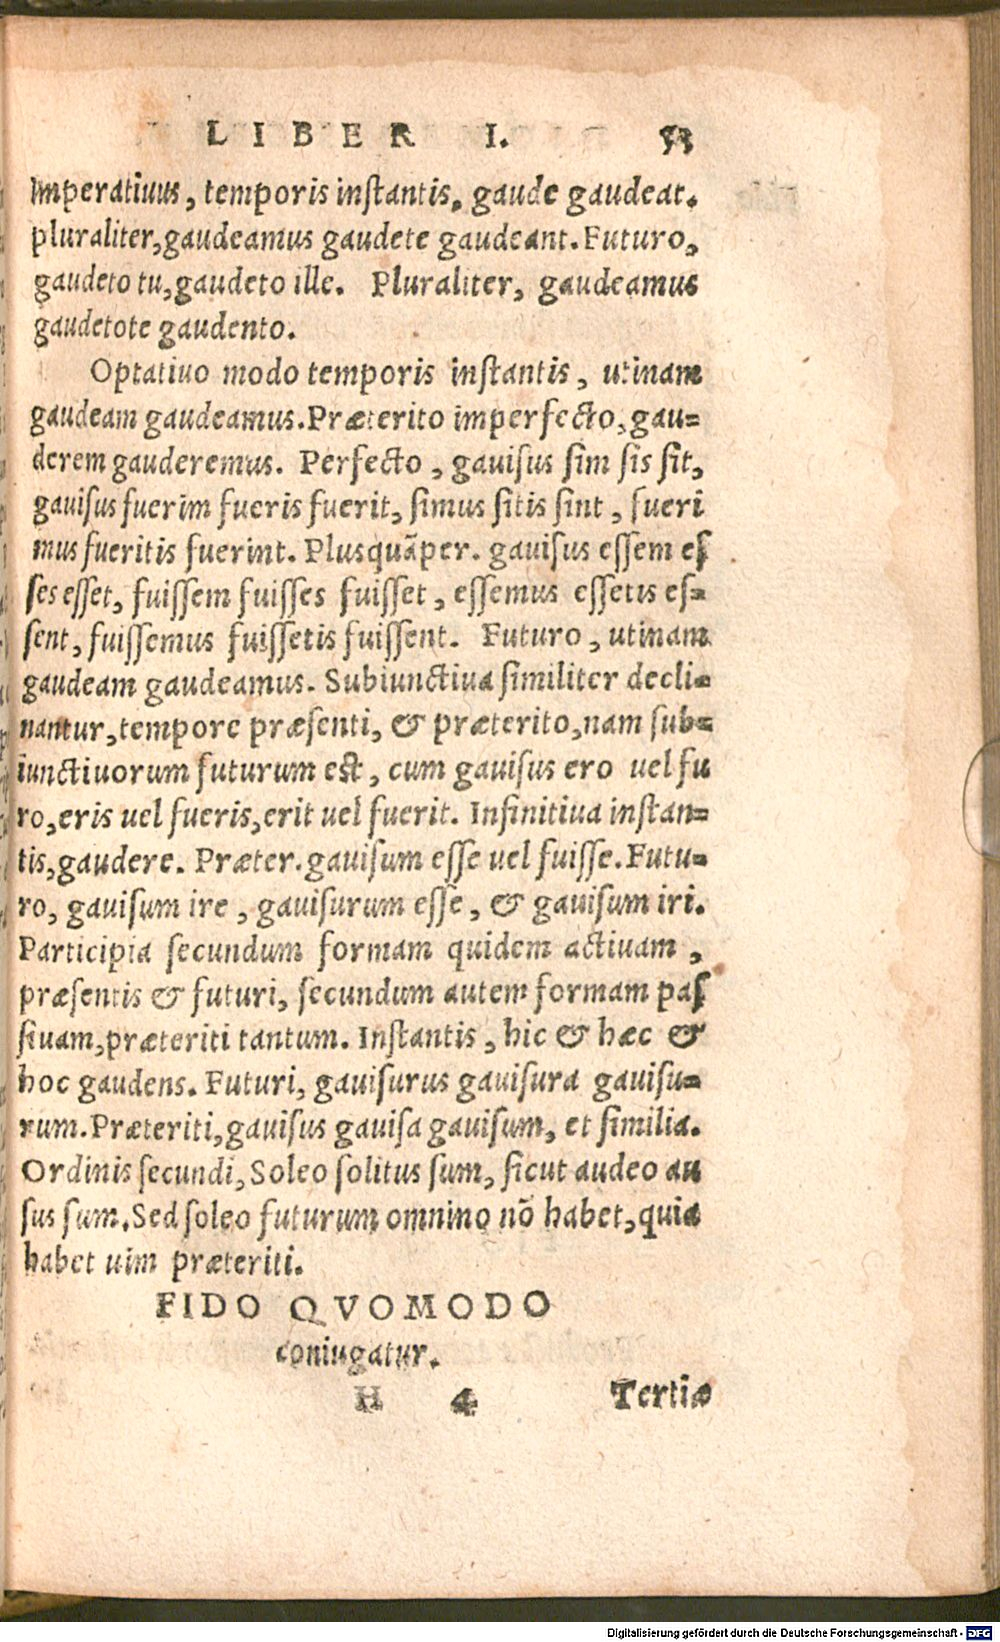 LIBER I. 53
Imperatiuus, temporis instantis, gaude gaudeat.
pluraliter, gaudeamus gaudete gaudeant. Futuro,
gaudeto tu, gaudeto ille. Pluraliter, gaudeamus
gaudetote gaudento.
Optatiuo modo temporis instantis, utinam
gaudeam gaudeamus. Præterito imperfecto, gau=
derem gauderemus. Perfecto, gauisus sim sis sit,
gauisus fuerim fueris fuerit, simus sitis sint, fueri
mus fueritis fuerint. Plusquāper. gauisus essem es
ses esset, fuissem fuisses fuisset, essemus essetis es=
sent, fuissemus fuissetis fuissent. Futuro, utinam
gaudeam gaudeamus. Subiunctiua similiter decli=
nantur, tempore præsenti, & præterito, nam sub=
iunctiuorum futurum est, cum gauisus ero uel fu
ro, eris uel fueris, erit uel fuerit. Infinitiua instan=
tis, gaudere. Præter. gauisum esse uel fuisse. Futu=
ro, gauisum ire, gauisurum esse, & gauisum iri.
Participia secundum formam quidem actiuam,
præsentis & futuri, secundum autem formam pas
siuam, præteriti tantum. Instantis, hic & hæc &
hoc gaudens. Futuri, gauisurus gauisura gauisu=
rum. Præteriti, gauisus gauisa gauisum, et similia.
Ordinis secundi, Soleo solitus sum, sicut audeo au
sus sum. Sed soleo futurum omnino nō habet, quia
habet uim præteriti.
FIDO QVOMODO
coniugatur.
H 4 Tertiæ
Digitalisierung gefördert durch die Deutsche Forschungsgemeinschaft - DFG